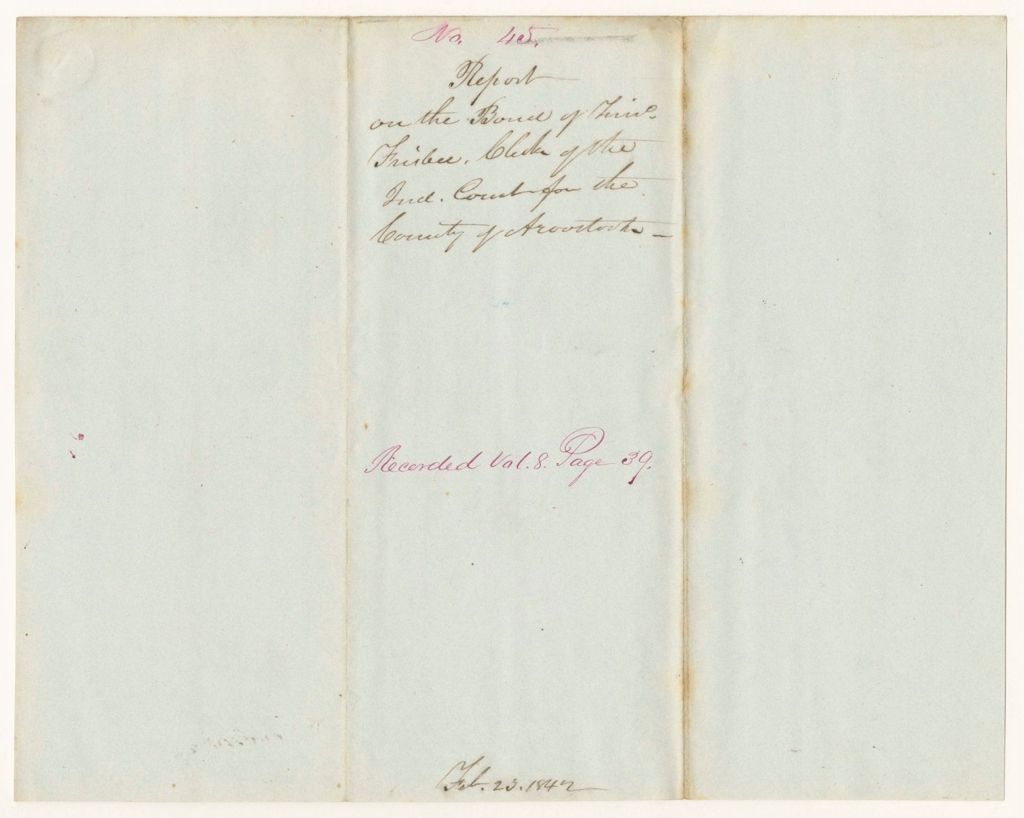 No. 45.
Report
on the Bond of Timo
Frisbee. Clerk of the
Jud. Court for the
County of Aroostook —
Recorded Vol. 8. Page 39.
Feb. 23. 1842